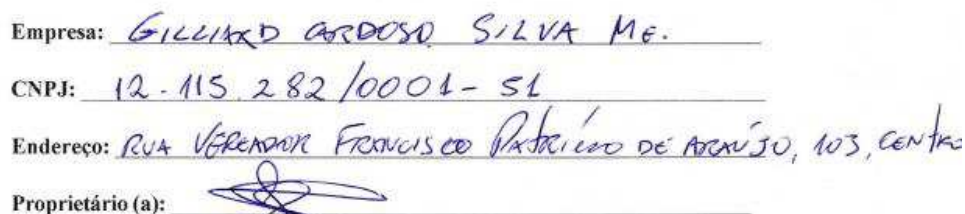 Empresa: GILLIARD CARDOSO SILVA ME.
CNPJ: 12.115.282/0001-51
Endereço: RUA VEREADOR FRANCISCO PATRÍCIO DE ARAÚJO, 103, CENTRO
Proprietário (a):